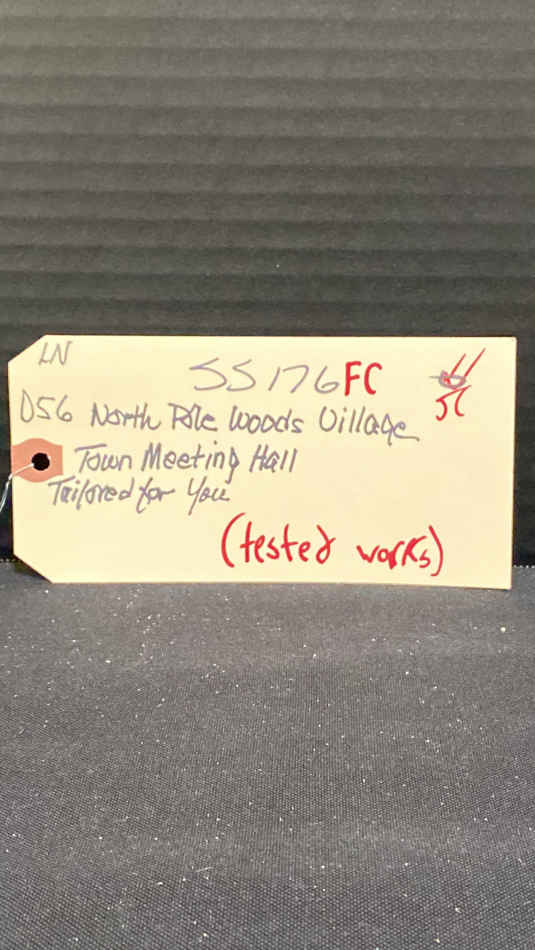 LN
SS176FC
D56 North Pole Woods Village
Town Meeting Hall
Tailored for You
(tested works)